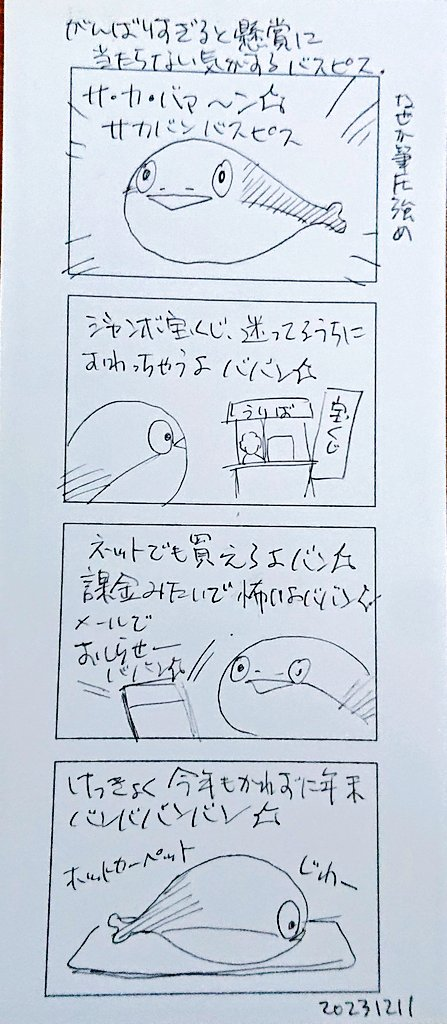 がんばりすぎると懸賞に
当たらない気がするバスピス.
なぜか筆圧強め
サ・カ・バァ〜ン☆
サカバンバスピス
ジャンボ宝くじ、迷ってるうちに
おわっちゃうよ ババン☆
うりば
宝くじ
ネットでも買えるよバン☆
課金みたいで怖いよババン☆
メールで
おしらせー
ババン☆
けっきょく 今年もかわずに年末
バンババンバン☆
ホットカーペット
じわー
20231211